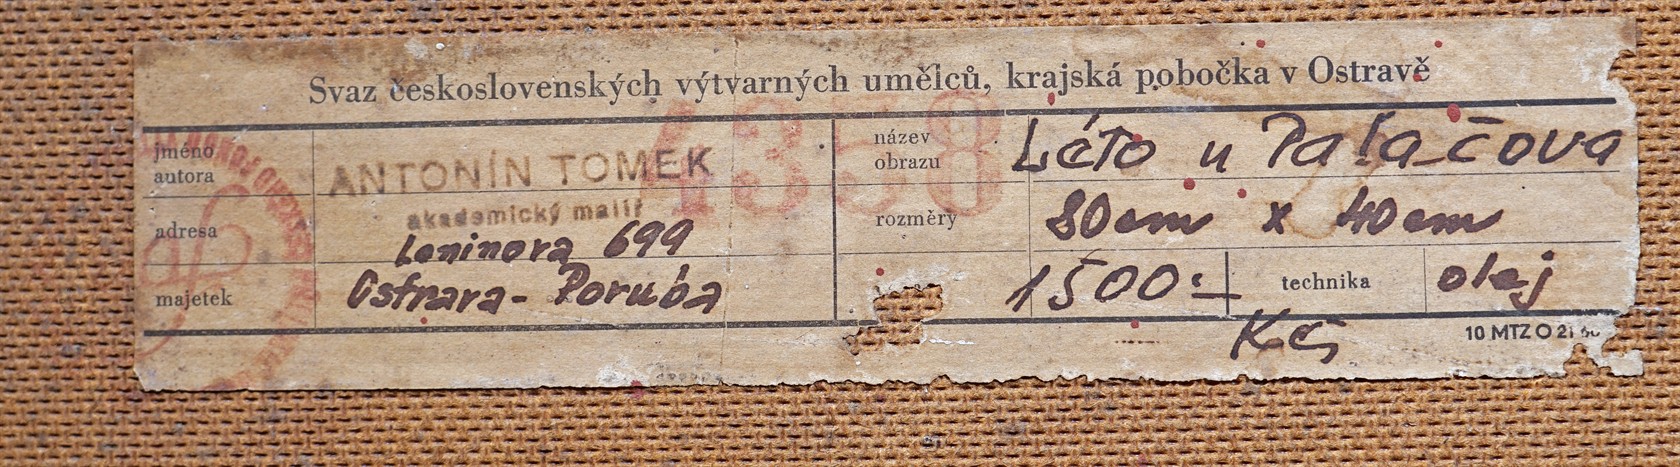 Svaz československých výtvarných umělců, krajská pobočka v Ostravě
jméno
autora
ANTONÍN TOMEK
akademický malíř
4358
název
obrazu
Léto u Palačova
adresa
Leninova 699
rozměry
80cm x 40cm
majetek
Ostrava - Poruba
1500:-
Kčs
technika
olej
10 MTZ O 21